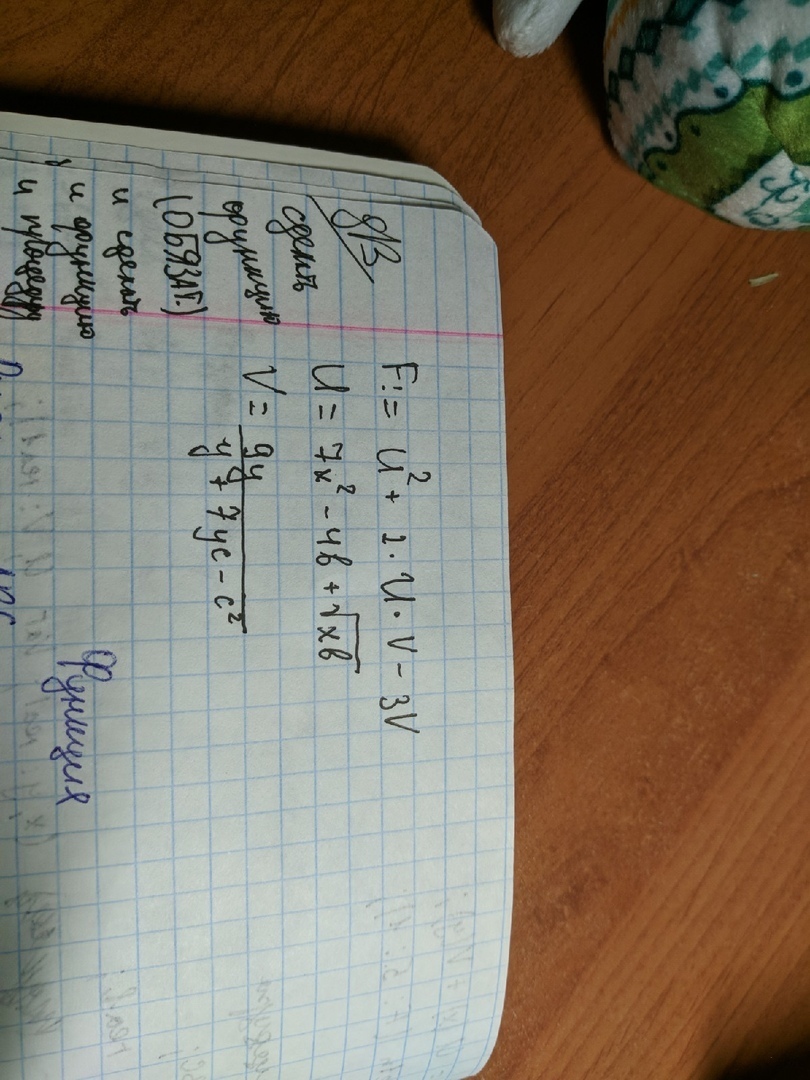 ДЗ
сделать
функцию
(ОБЯЗАТ.)
и сделать
и функцию
и процедуру
F:= U² + 2·U·V – 3V
U = 7x² – 4b + √xb
V = 9y / y⁹ + 7yc – c²
Функция